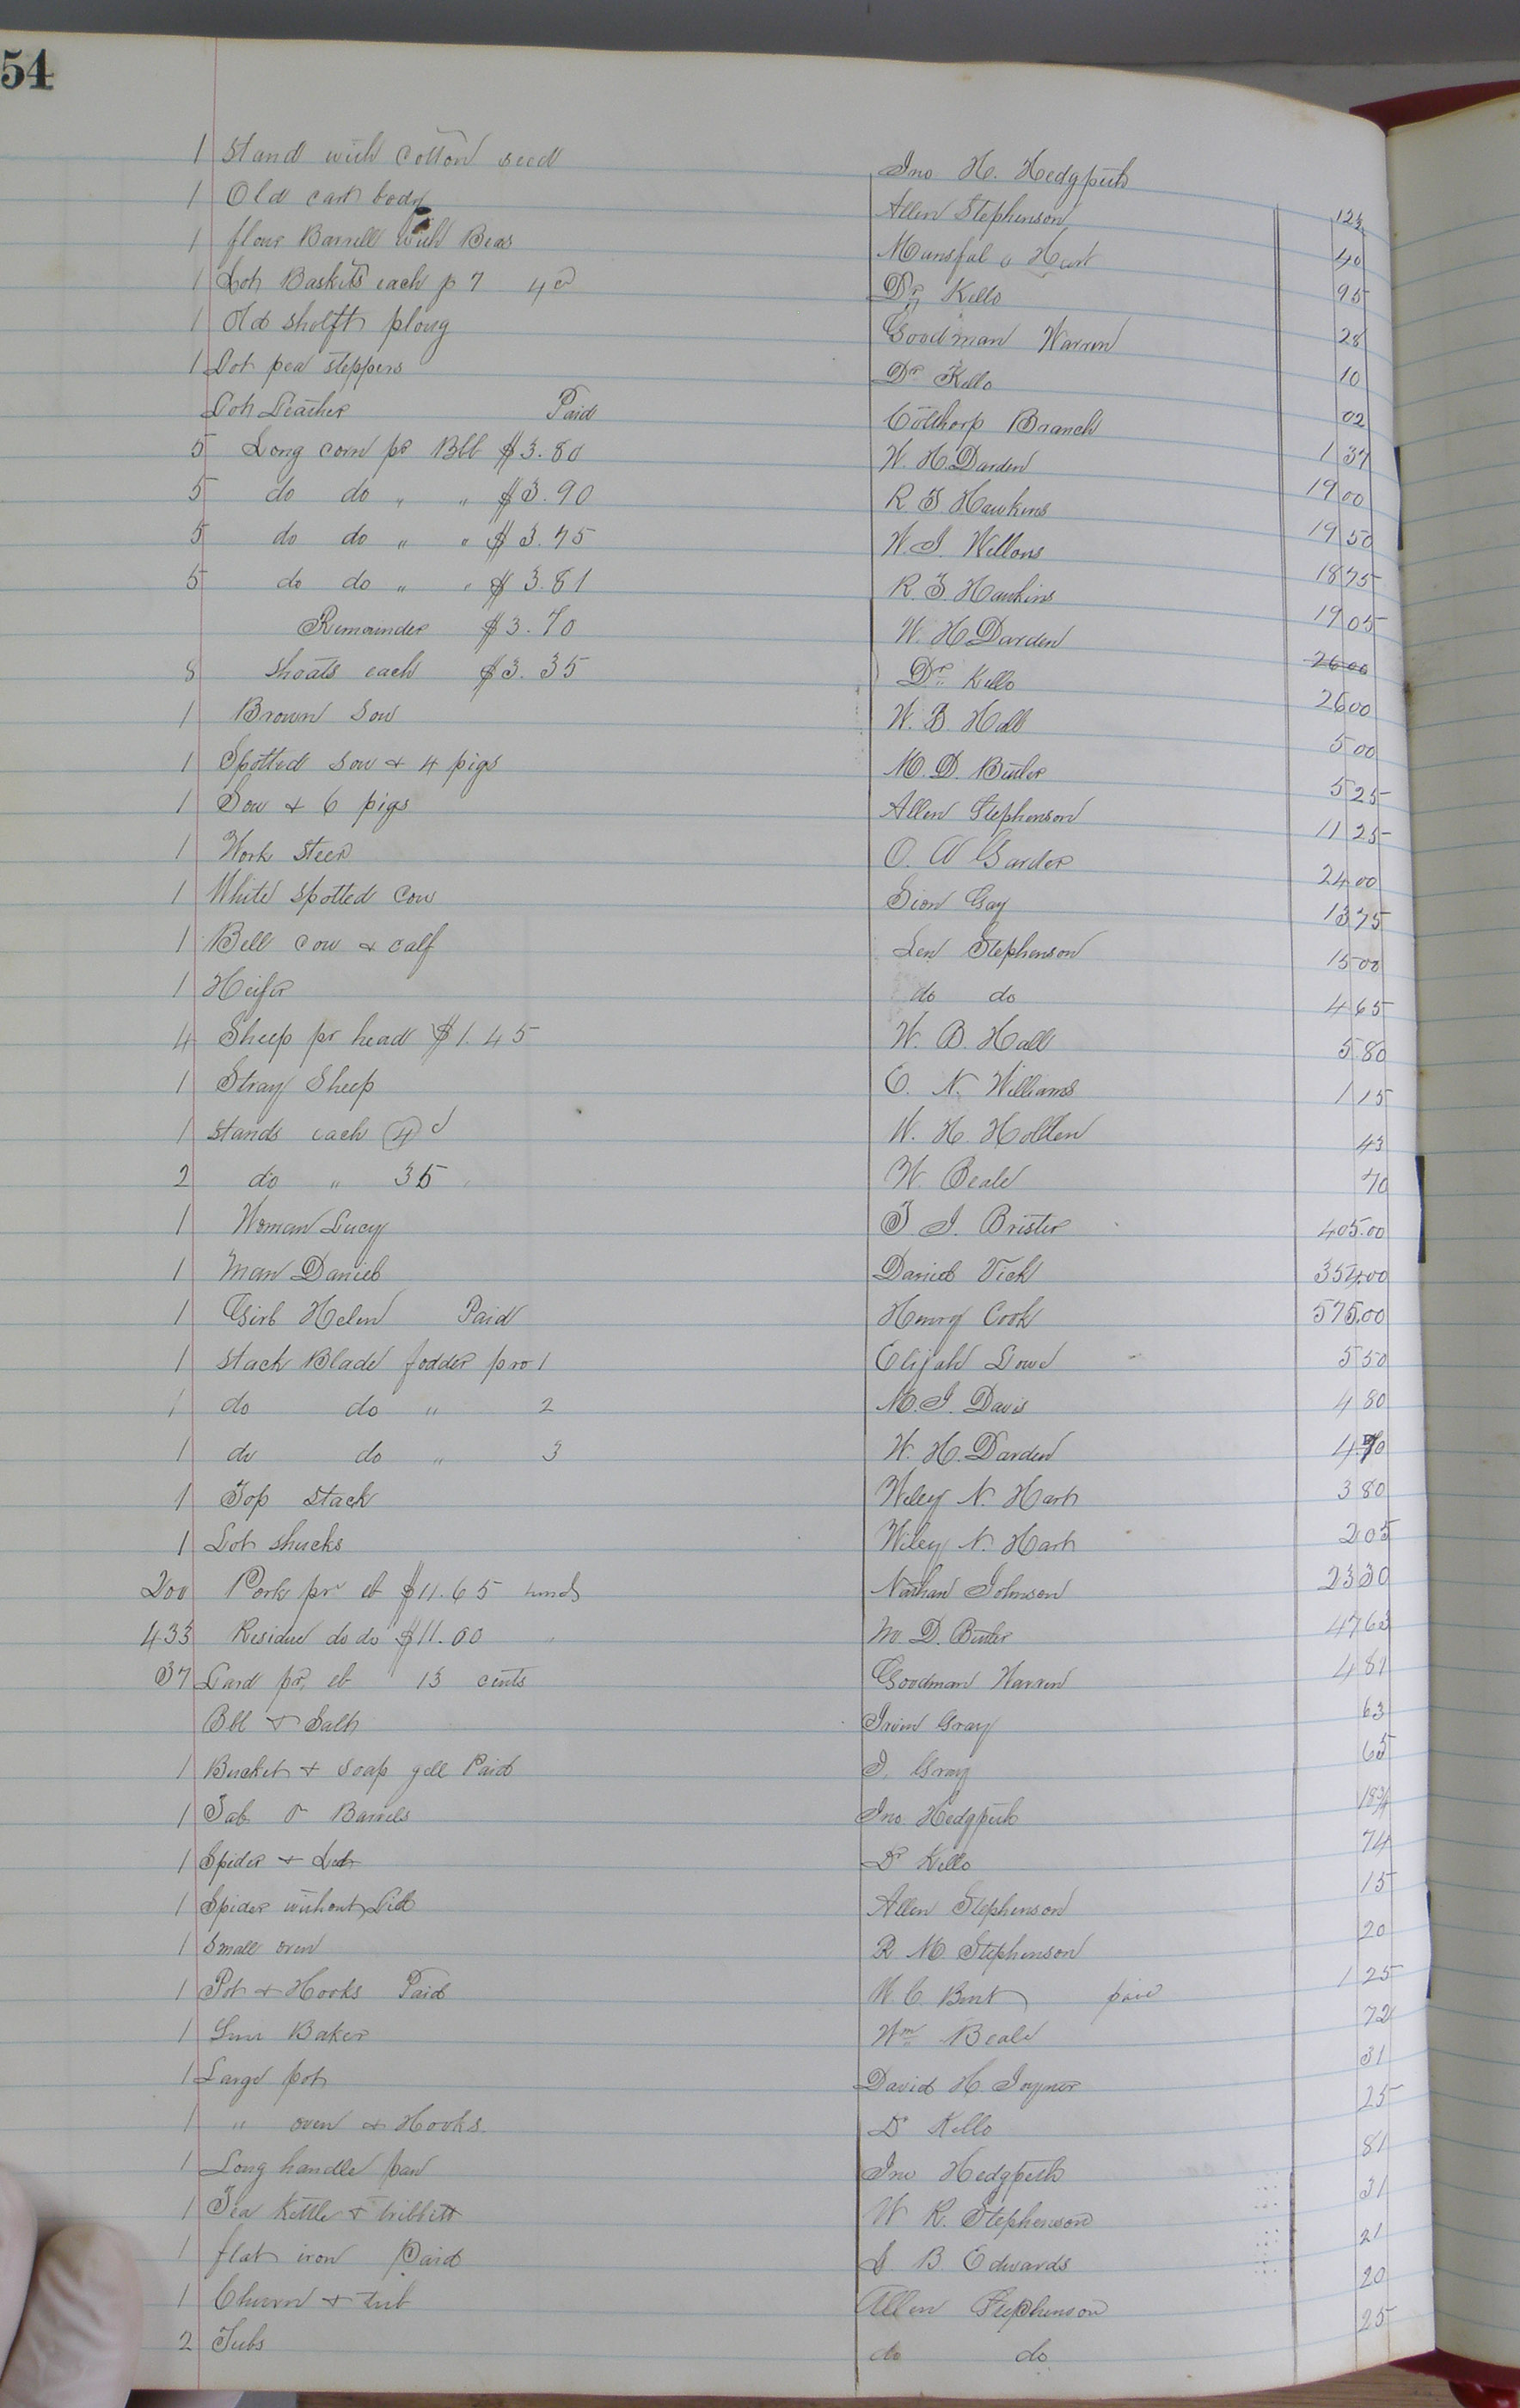 54
1 Stand with Cotton seed Jno H. Hedgpeth 12½
1 Old cart body Allen Stephenson 40
1 flour Barrell with Beas Mansful Hart 95
1 Lot Baskets each p 7 4 d Dr Kello 28
1 Old shelft ploug Goodman Warren 10
1 Lot pea steppers Dr Kello 02
Lot Leather Paid Cotthorp Branch 1 37
5 Long corn pr Bbl $3.80 W. H. Darden 19 00
5 do do " " $3.90 R T Hawkins 19 50
5 do do " " $3.75 W. J. Wellons 18 75
5 do do " " $3.81 R. T. Hawkins 19 05
Remainder $3.70 W. H Darden 26 00
8 shoats each $3.35 Dr Kello 26 00
1 Brown Sow W. B. Hall 5 00
1 Spotted Sow & 4 pigs M. D. Butler 5 25
1 Sow & 6 pigs Allen Stephenson 11 25
1 Work Steer O. W Garder 24 00
1 White spotted Cow Sion Gay 13 75
1 Bell Cow & calf Len Stephenson 15 00
1 Heifer do do 4 65
4 Sheep pr head $1.45 W. B. Hall 5 80
1 Stray Sheep E. N. Williams 1 15
1 Stands each W. H. Holden 43
2 do " 35 W. Beale 70
1 Woman Lucy T. J. Brister 405.00
1 Man Daniel Daniel Vick 354.00
1 Girl Helen Paid Henry Cook 575.00
1 Stack Blade fodder pr no 1 Elijah Lowe 5 50
1 do do " 2 M. J. Davis 4 80
1 do do " 3 W. H. Darden 4 70
1 Top Stack Wiley N. Hart 3 80
1 Lot shucks Wiley N. Hart 2 05
200 Pork pr ct $11.65 Nathan Johnson 23 30
433 Residue do do $11.00 M. D. Butler 47 63
37 Lard pr. lb 13 cents Goodman Warren 4 81
Bbl & Salt Irvin Gray 63
1 Bucket & soap Paid J. Gray 65
1 Tab & Barrels Jno. Hedgpeth 18¾
1 Spider & Led Dr Kello 74
1 Spider without Lid Allen Stephenson 15
1 Small oven R. M. Stephenson 20
1 Pot & Hooks Paid W. C. Bret paid 1 25
1 Baker Wm Beale 72
1 Large pot David H. Joyner 31
1 " oven & Hooks. Dr Kello 25
1 Long handle pan Jno Hedgpeth 81
1 Tea Kettle & tribbitt W R. Stephenson 31
1 flat iron Paid J. B. Edwards 21
1 Churn & tub Allen Stephenson 20
2 Tubs do do 25